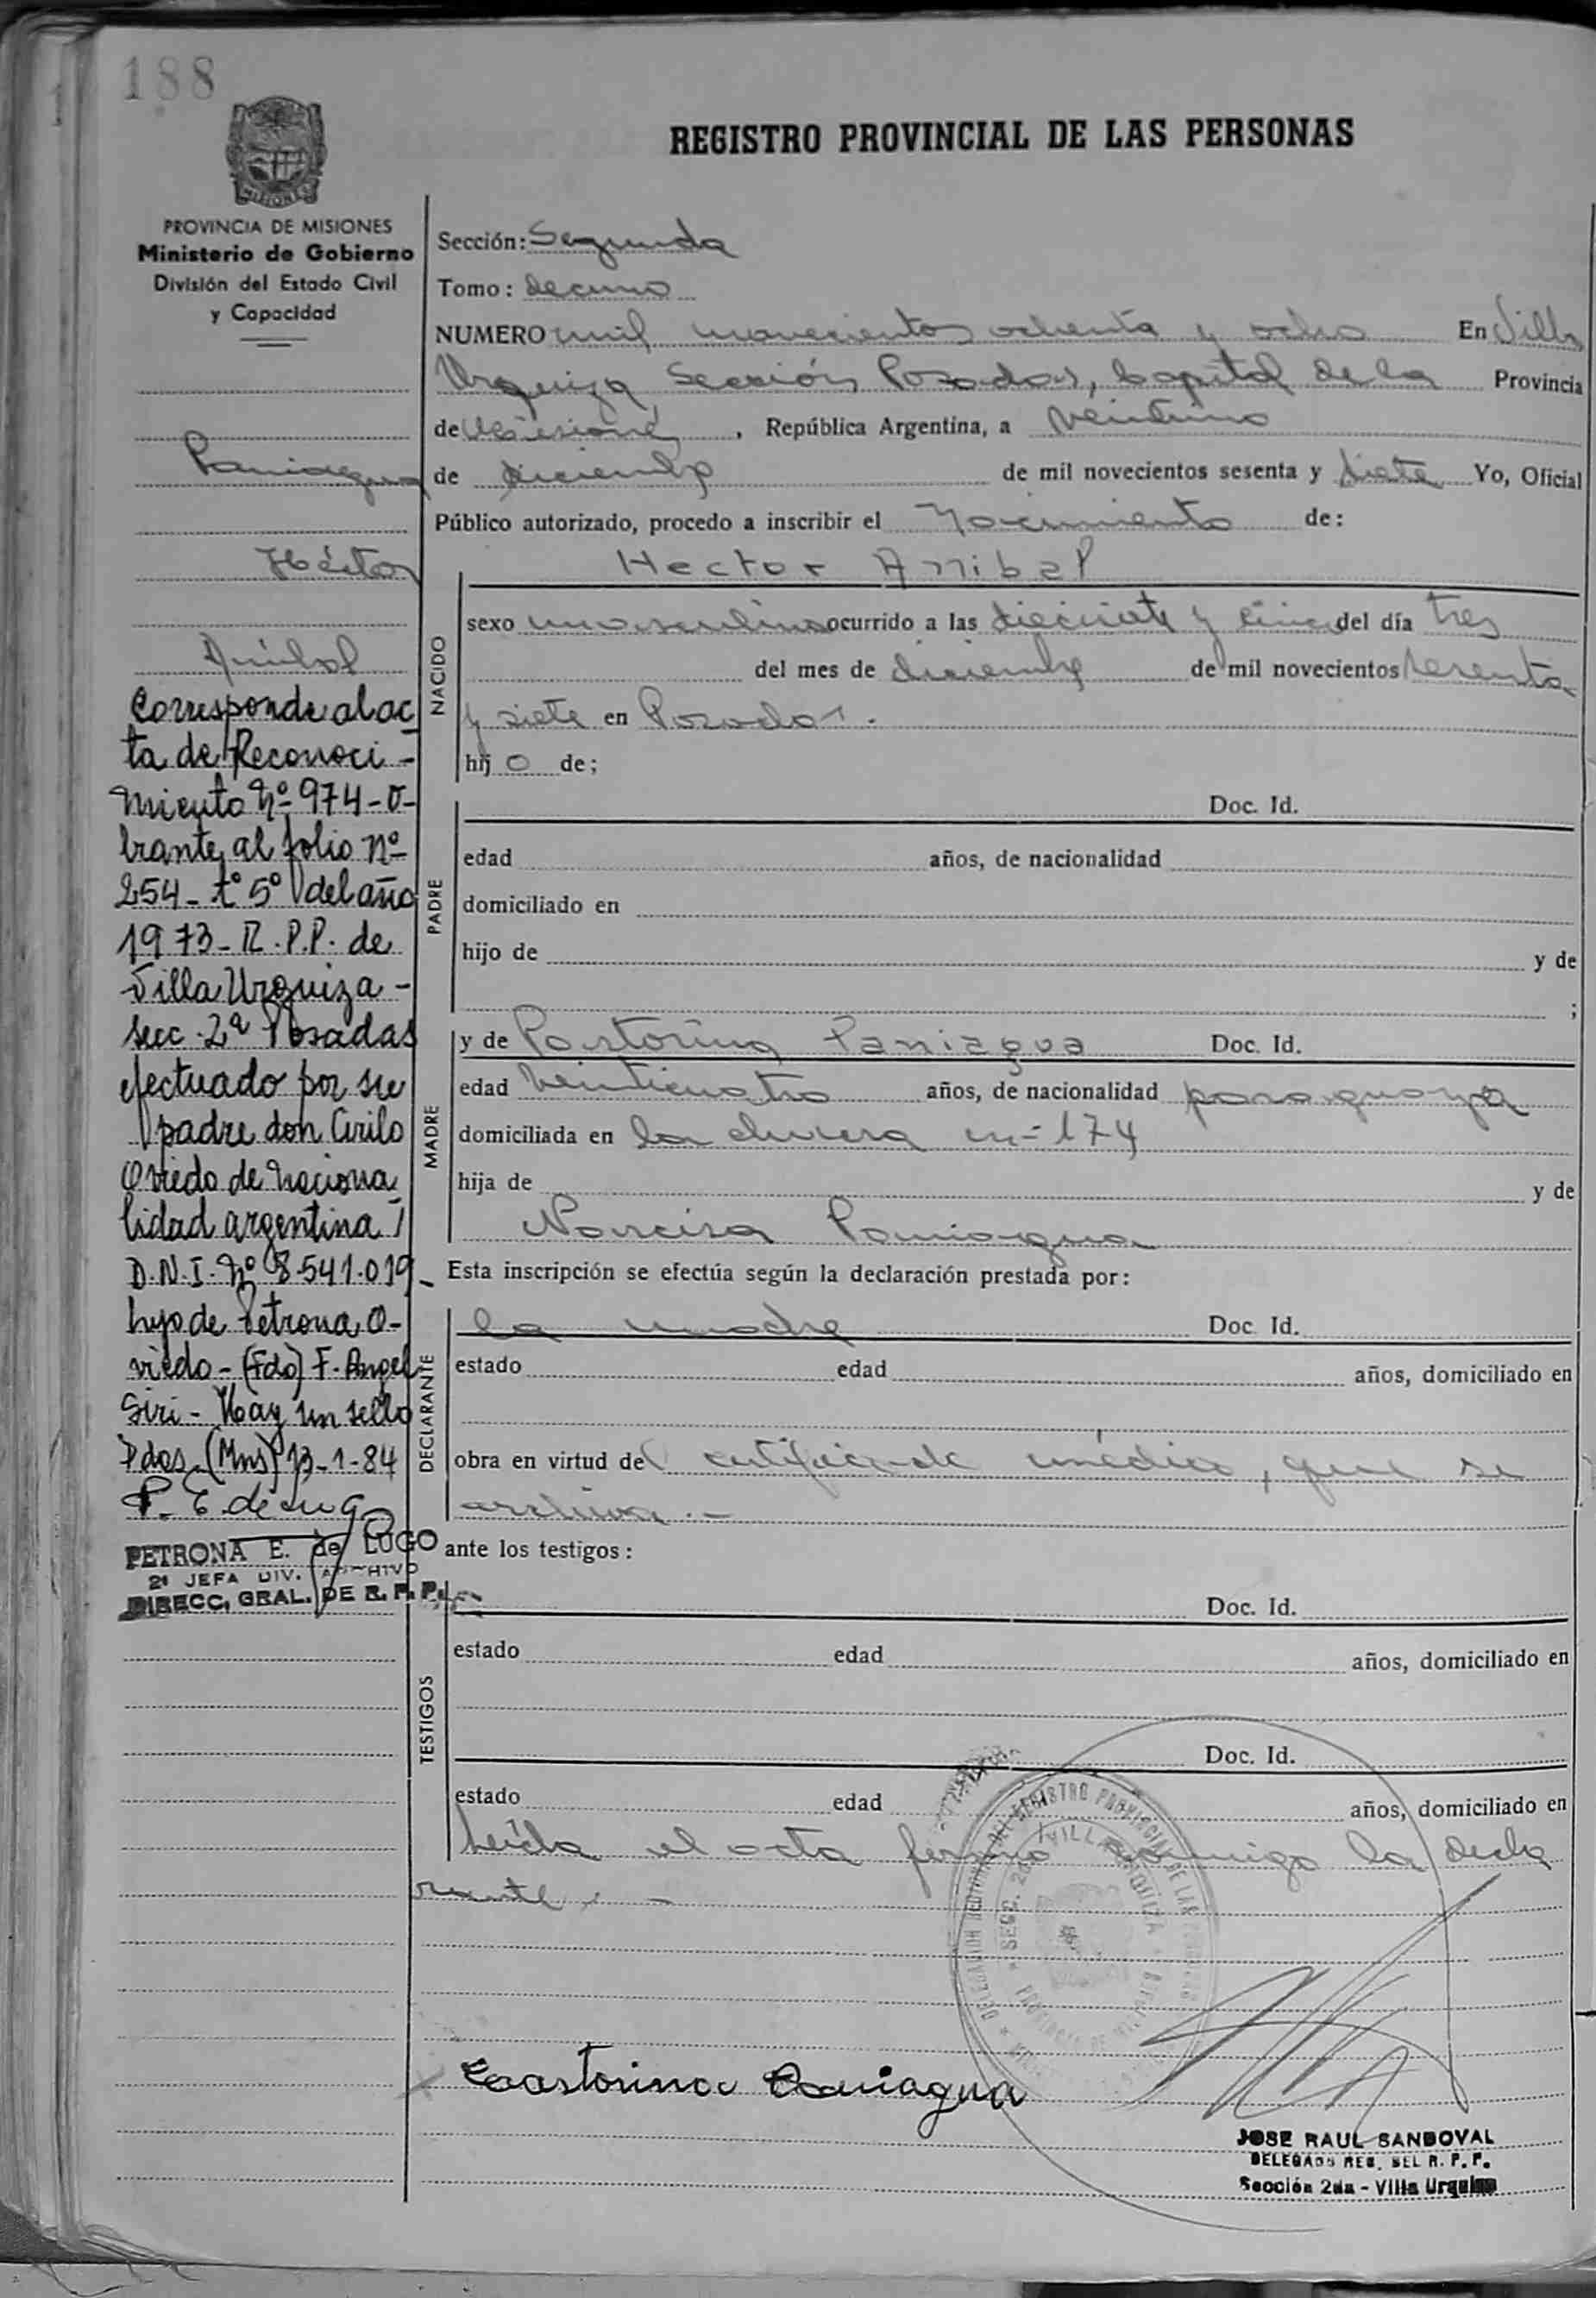 188
MISIONES
PROVINCIA DE MISIONES
Ministerio de Gobierno
División del Estado Civil
y Capacidad
Paniagua
Héctor
Anibal
Corresponde al ac-
ta de Reconoci-
miento Nº 974-o-
brante al folio nº
254- tº 5º del año
1973- R.P.P. de
Villa Urquiza-
secc. 2ª Posadas
efectuado por su
padre don Cirilo
Oviedo de naciona-
lidad argentina
D.N.I. Nº 8.541.019-
hijo de Petrona O-
viedo- (Fdo) F. Angel
Siri- Hay un sello
Pdas. (Mns) 13-1-84
P. E. de Lugo
PETRONA E. de LUGO
2ª JEFA DIV. ARCHIVO
DIRECC. GRAL. DE R. P. P.
REGISTRO PROVINCIAL DE LAS PERSONAS
Sección: Segunda
Tomo: decimo
NUMERO mil novecientos ochenta y ocho En Villa
Urquiza Sección Posadas, Capital de la Provincia
de Misiones, República Argentina, a veintiuno
de diciembre de mil novecientos sesenta y siete Yo, Oficial
Público autorizado, procedo a inscribir el Nacimiento de:
Hector Anibal
NACIDO
sexo masculino ocurrido a las diecisiete y cinco del día tres
del mes de diciembre de mil novecientos sesenta
y siete en Posadas.
hijo de;
PADRE
Doc. Id.
edad años, de nacionalidad
domiciliado en
hijo de y de
;
MADRE
y de Pastorina Paniagua Doc. Id.
edad veinticuatro años, de nacionalidad paraguaya
domiciliada en la chacra nº 174
hija de y de
Narcisa Paniagua
Esta inscripción se efectúa según la declaración prestada por:
DECLARANTE
la madre Doc Id.
estado edad años, domiciliado en
obra en virtud del certificado médico, que se
archiva.-
ante los testigos:
TESTIGOS
Doc. Id.
estado edad años, domiciliado en
Doc. Id.
estado edad años, domiciliado en
Leída el acta firmó conmigo la decla
rante.-
SECC. 2da VILLA URQUIZA
Pastorina Paniagua
JOSE RAUL SANDOVAL
DELEGADO REG. DEL R. P. P.
Sección 2da - Villa Urquiza